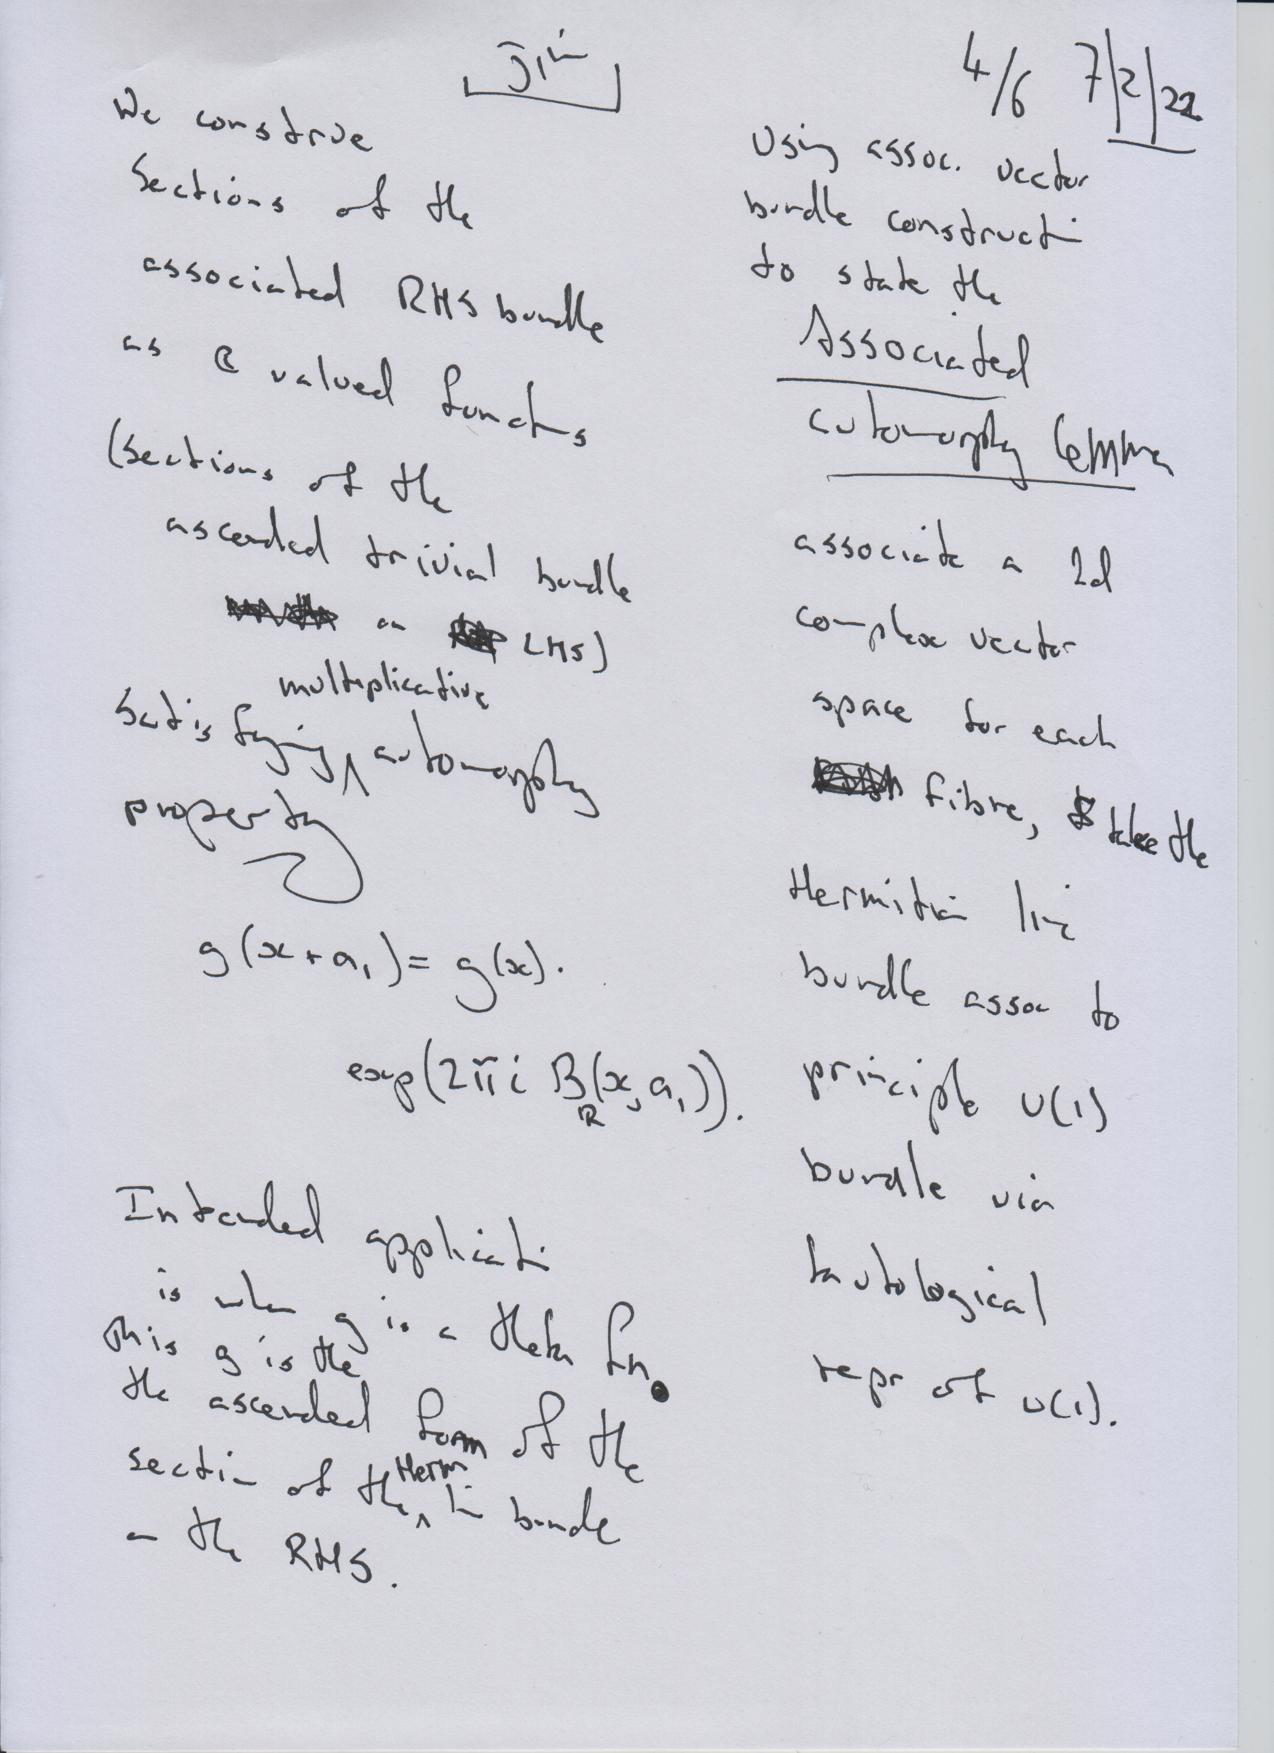 4/6 7/2/22
We construe
Sections of the
associated RHS bundle
as ℂ valued functs
(sections of the
ascended trivial bundle
on LHS)
multiplicative
Satisfying ^ automorphy
property
g(x+a₁) = g(x).
exp(2πi B_R(x, a₁)).
Intended applicati
is when g is a theta fn.
This g is the
the ascended form of the
section of the ^ Herm lin bundle
on the RHS.
Using assoc. vector
bundle constructi
to state the
Associated
automorphy lemma
associate a 1d
complex vector
space for each
fibre, take the
Hermitian line
bundle assoc to
principle U(1)
bundle via
tautological
repr of U(1).